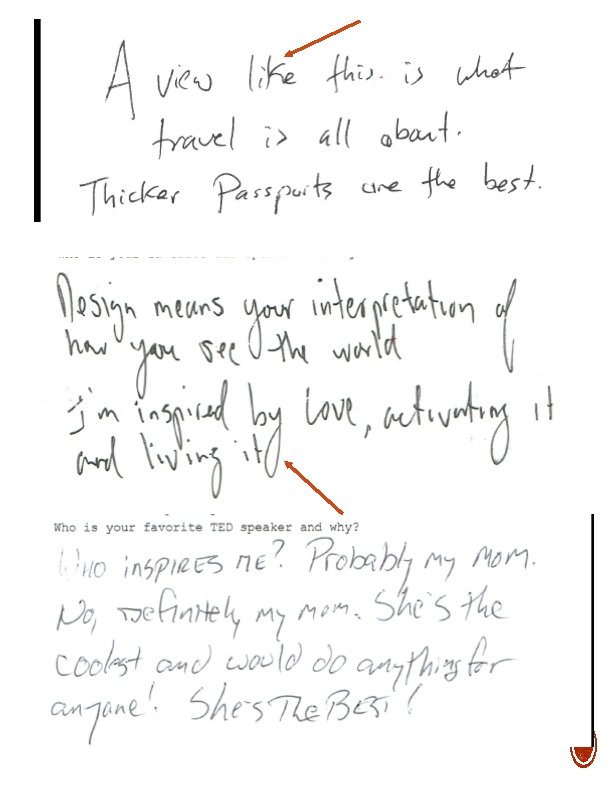 A view like this is what
travel is all about.
Thicker Passports are the best.
Design means your interpretation of
how you see the world
i'm inspired by love, activating it
and living it
Who is your favorite TED speaker and why?
WHO INSPIRES ME? Probably my mom.
No, Definitely my mom. She's the
coolest and would do anything for
anyone! She's The BEST!